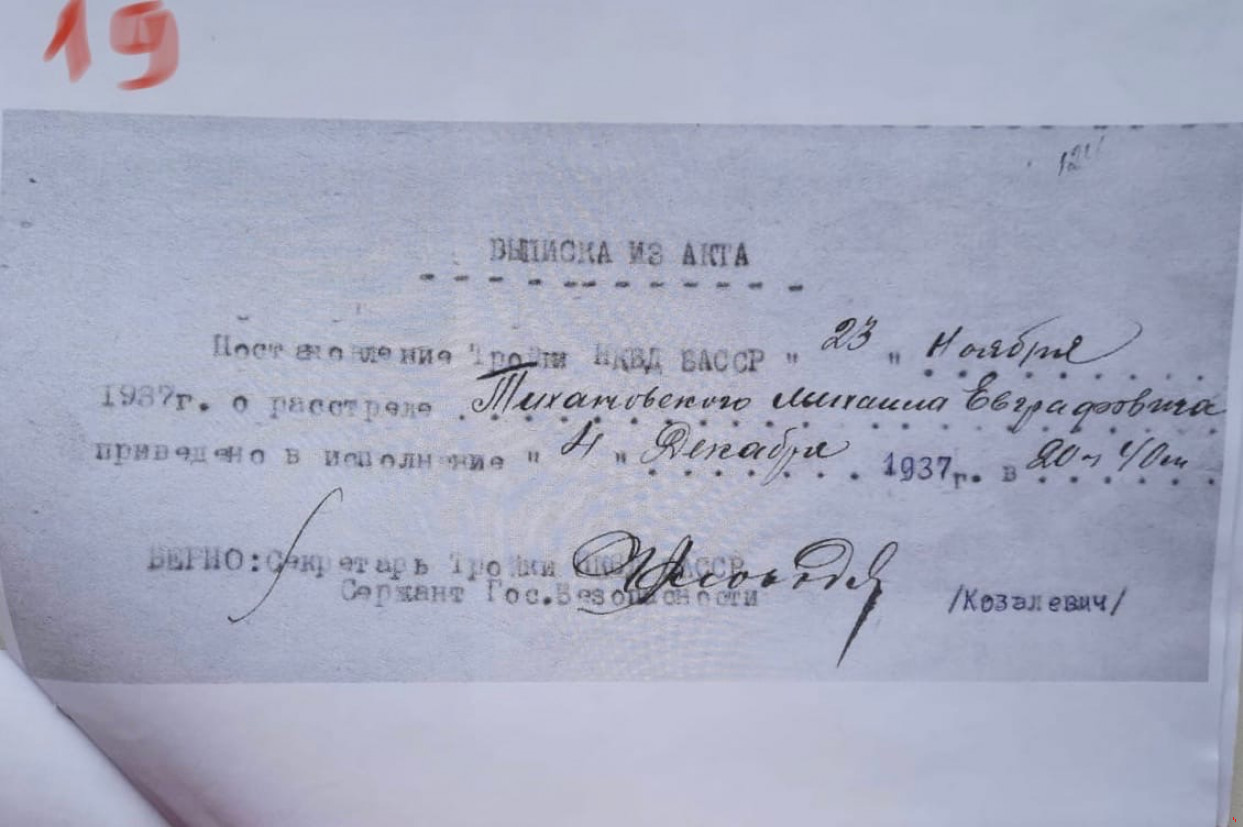 19
124
ВЫПИСКА ИЗ АКТА
Постановление Тройки НКВД БАССР " 23 " Ноября
1937г. о расстреле Тихановского Михаила Евграфовича
приведено в исполнение " 4 " Декабря 1937г. в 20ч 40м
ВЕРНО: Секретарь Тройки НКВД БАССР
Сержант Гос.Безопасности /Козалевич/